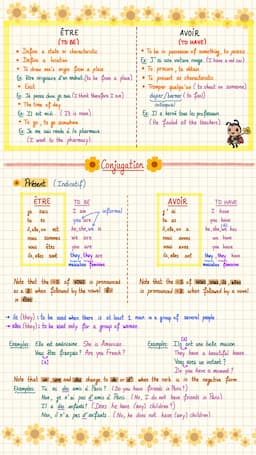 ÊTRE
(TO BE)
• Define a state or characteristic
• Define a location
• To draw one's origin from a place
Ex: être originaire d'un endroit (to be from a place)
• Exist
Ex: Je pense donc je suis (I think therefore I am)
• The time of day
Ex: Il est midi (It is noon)
• To go, to go somewhere
Ex: Je me suis rendu à la pharmacie
(I went to the pharmacy)
AVOIR
(TO HAVE)
• To be in possession of something, to possess
Ex: J'ai une voiture rouge (I have a red car)
• To procure, to obtain
• To present as characteristic
• Tromper quelqu'un (to cheat on someone)
duper/berner (to fool)
Ex: Il a berné tous les professeurs
(He fooled all the teachers)
Conjugation
Présent (Indicatif)
ÊTRE TO BE
je suis I am
tu es you are informal
il, elle, on est he, she, we is
nous sommes we are
vous êtes you are
ils, elles sont they, they are
masculine feminine
AVOIR TO HAVE
j'ai I have
tu as you have
il, elle, on a he, she, we has
nous avons we have
vous avez you have
ils, elles ont they, they have
masculine feminine
Note that the -s of vous is pronounced
as a z when followed by the vowel ê
in êtes
Note that the -s of nous, vous, ils, elles
is pronounced -z when followed by a vowel
→ ils (they): to be used when there is at least 1 man in a group of several people
→ elles (they): to be used only for a group of women
Examples: Elle est américaine. She is American.
Vous êtes français? Are you French?
[z]
Examples: Ils ont une belle maison
They have a beautiful house
Vous avez un instant?
Do you have a moment?
Note that un, une and des change to de or d' when the verb is in the negative form
Examples: Tu as des amis à Paris? (Do you have friends in Paris?)
Non, je n'ai pas d'amis à Paris (No, I do not have friends in Paris)
Il a des enfants? (Does he have (any) children?)
Non, il n'a pas d'enfants. (No, he does not have (any) children)